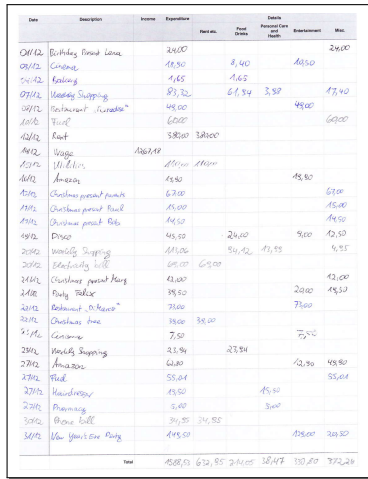 Date Description Income Expenditure Details
Rent etc. Food Drinks Personal Care and Health Entertainment Misc.
01/12 Birthday Present Lena 24,00 24,00
03/12 Cinema 18,90 8,40 10,50
04/12 Bakery 1,65 1,65
07/12 Weekly Shopping 83,32 61,94 3,98 17,40
08/12 Restaurant 49,00 49,00
10/12 Fuel 60,00 60,00
12/12 Rent 380,00 380,00
14/12 Wage 1267,18
15/12 110,00 110,00
16/12 Amazon 19,90 19,90
17/12 Christmas present parents 67,00 67,00
17/12 Christmas present Paul 15,00 15,00
17/12 Christmas present 14,50 14,50
19/12 Disco 45,50 24,00 9,00 12,50
20/12 Weekly Shopping 113,06 94,12 4,95
20/12 Electricity bill 69,00 69,00
21/12 Christmas present Mary 12,00 12,00
21/12 Party Felix 39,50 20,00 19,50
22/12 Restaurant 73,00 73,00
22/12 Christmas tree 39,00 39,00
7,50 7,50
23/12 Weekly Shopping 23,94 23,94
27/12 Amazon 12,90 49,90
27/12 Fuel 55,01 55,01
27/12 Hairdresser 15,50 15,50
27/12 Pharmacy 5,00 5,00
30/12 Phone bill 34,95 34,95
31/12 New Year's Eve Party 149,50 129,00 20,50
Total 632,95 38,47